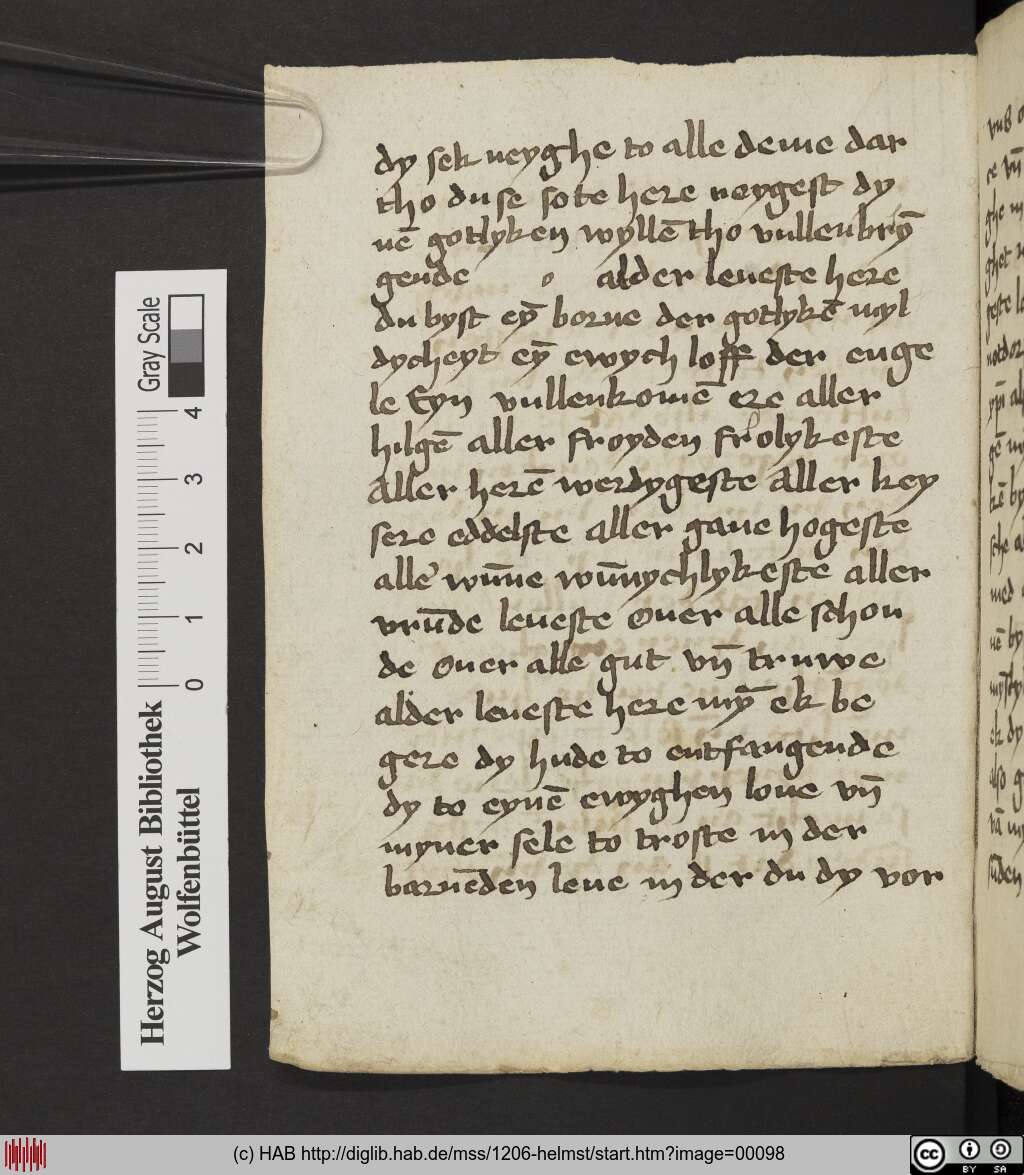 dy sek neyghe to alle deme dar
tho du se sote here neygest dy
nē gotlyken wyllē tho vullenbrȳ
gende o alder leueste here
du byst eȳ borne der gotlykē myl
dycheyt eȳ ewych loff der enge
le Eyn vullenkomē ere aller
hilgē aller froyden frolykeste
aller herē werdygeste aller key
sere eddelste aller gaue hogeste
alle wūne wūnychlykeste aller
vrūde leueste ouer alle schon
de ouer alle gut vn̄ truwe
alder leueste here mȳ ek be
gere dy hude to entfangende
dy to eynē ewyghen loue vn̄
myner sele to troste in der
barnēden leue in der du dy vor
Gray Scale
0 1 2 3 4
Herzog August Bibliothek
Wolfenbüttel
(c) HAB http://diglib.hab.de/mss/1206-helmst/start.htm?image=00098
cc BY SA